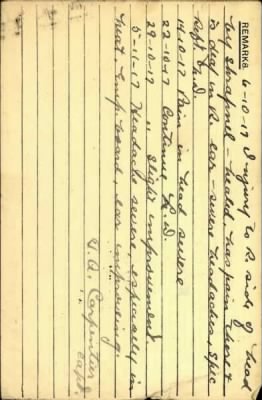 REMARKS. 6-10-17 Injury to R. side of head
by shrapnel - healed has pain there &
is deaf in R. ear - severe headaches,
Rept. L.D.
14-10-17 Pain in head severe
22-10-17 Continue L.D.
29-10-17 " Slight improvement
5-11-17 Headache severe, especially in
heat. Emp. board, ear improving.
Carpentier
Capt.